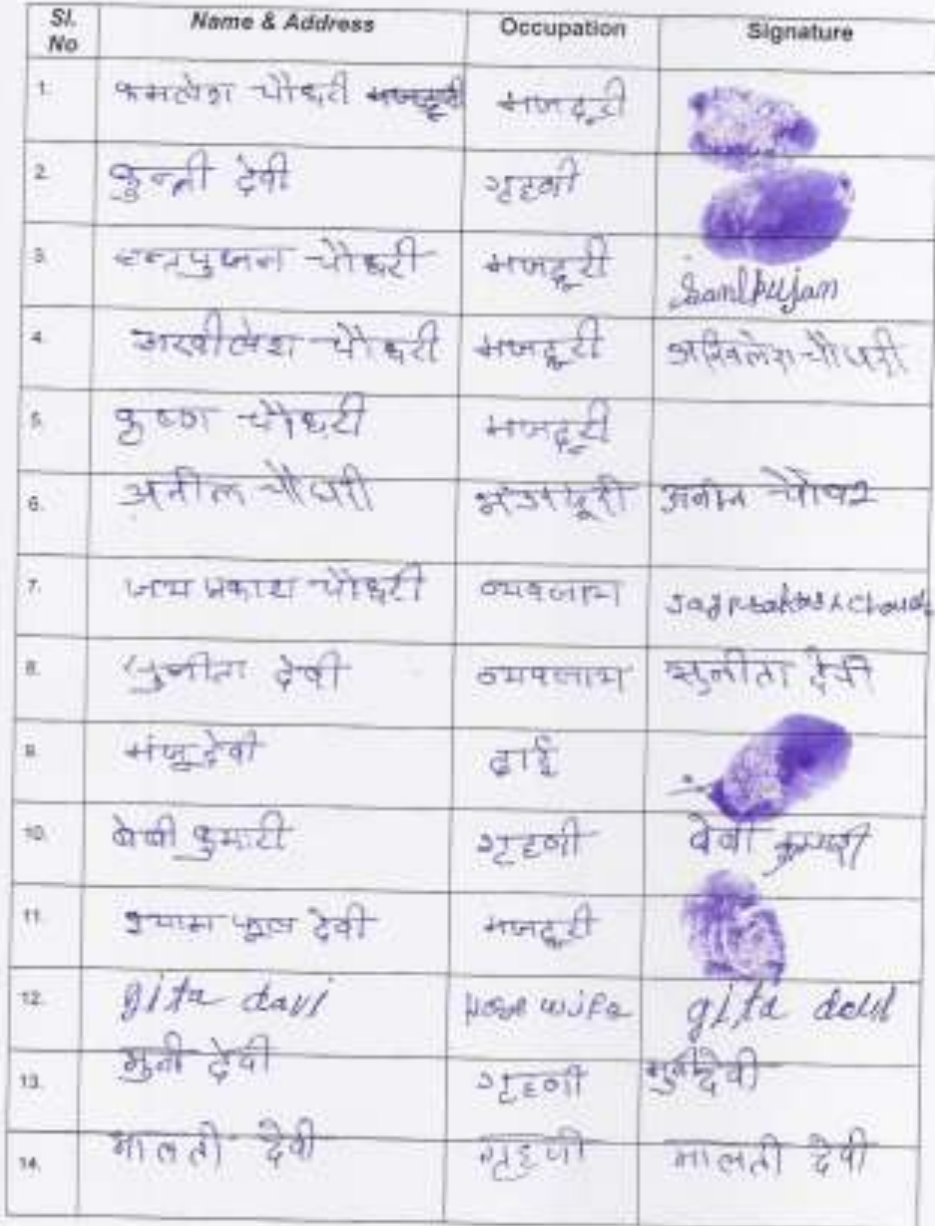 Sl. No Name & Address Occupation Signature
1. कमलेश चौधरी मजदूरी मजदूरी
2. कुन्ती देवी गृहणी
3. सन्तपुजन चौधरी मजदूरी Santpujan
4. अखीलेश चौधरी मजदूरी अखिलेश चौधरी
5. कृष्णा चौधरी मजदूरी
6. अनील चौधरी मजदूरी अनील
7. जय प्रकाश चौधरी व्यवसाय
8. सुनीता देवी व्यवसाय सुनीता देवी
9. मंजू देवी दाई
10. बेबी कुमारी गृहणी बेबी कुमारी
11. श्याम फूल देवी मजदूरी
12. gita davi gita
13. मुनी देवी गृहणी मुनी देवी
14. मालती देवी गृहणी मालती देवी